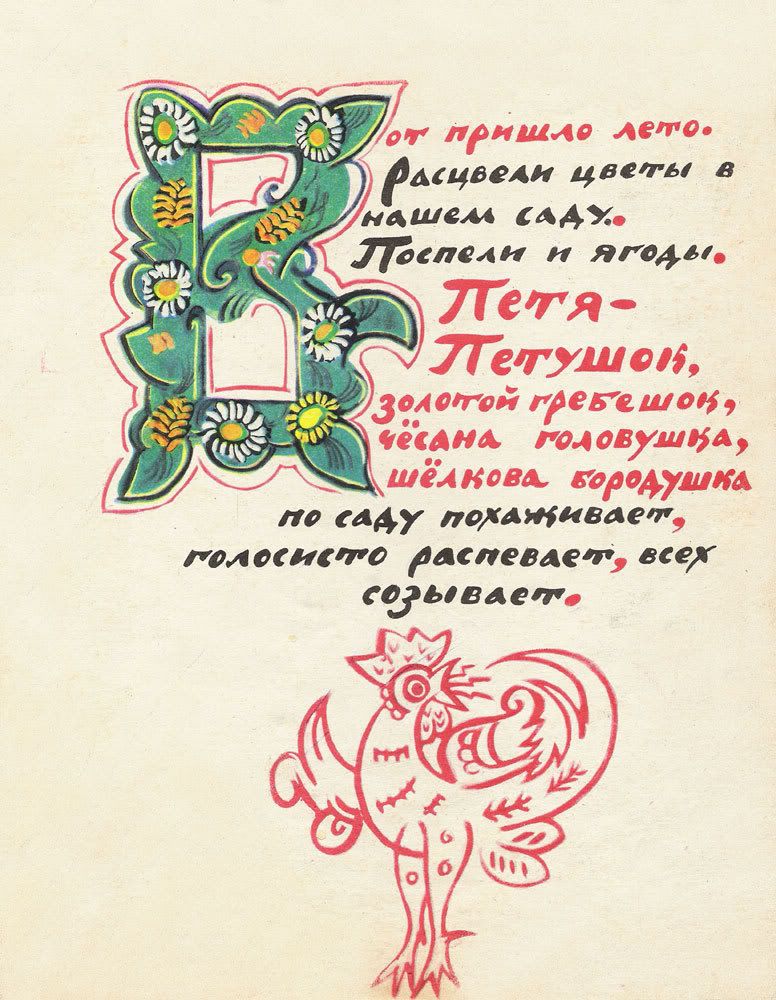 Вот пришло лето.
Расцвели цветы в
нашем саду.
Поспели и ягоды.
Петя-
Петушок,
золотой гребешок,
чёсана головушка,
шёлкова бородушка
по саду похаживает,
голосисто распевает, всех
созывает.